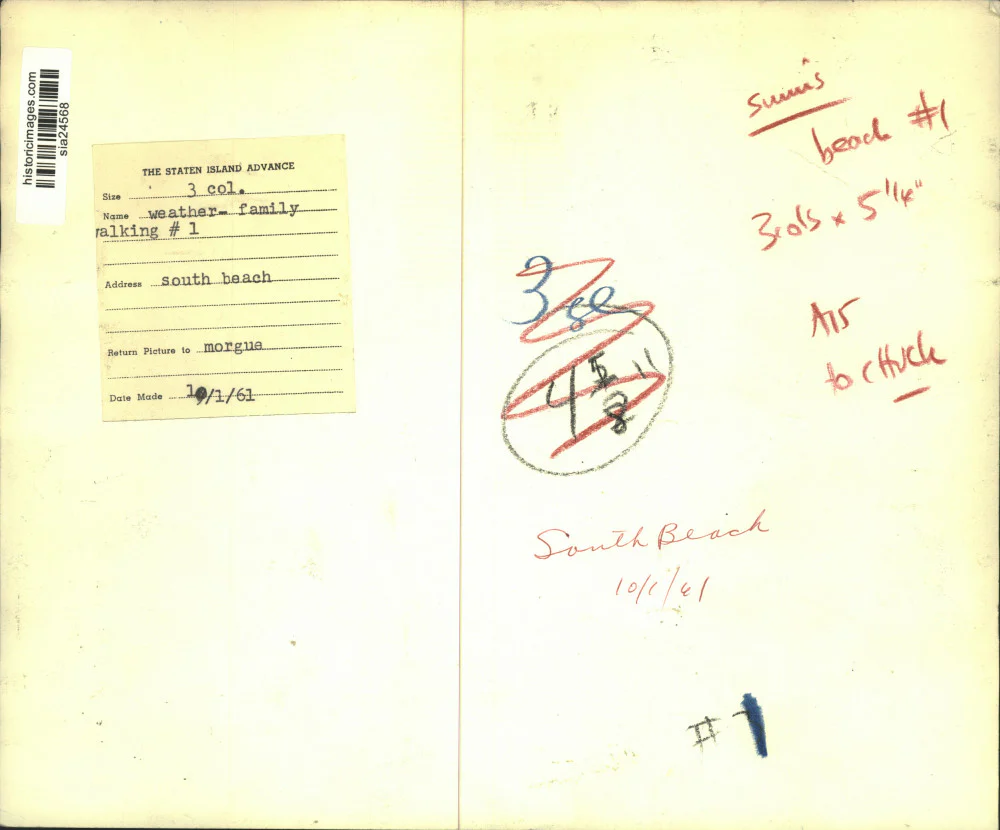 historicimages.com
sia24568
THE STATEN ISLAND ADVANCE
Size 3 col.
Name weather- family
alking # 1
Address south beach
Return Picture to morgue
Date Made 10/1/61
beach #1
3cols x 5 1/4"
A15
to CHUCK
3
4 5/8"
South Beach
10/1/61
# 1